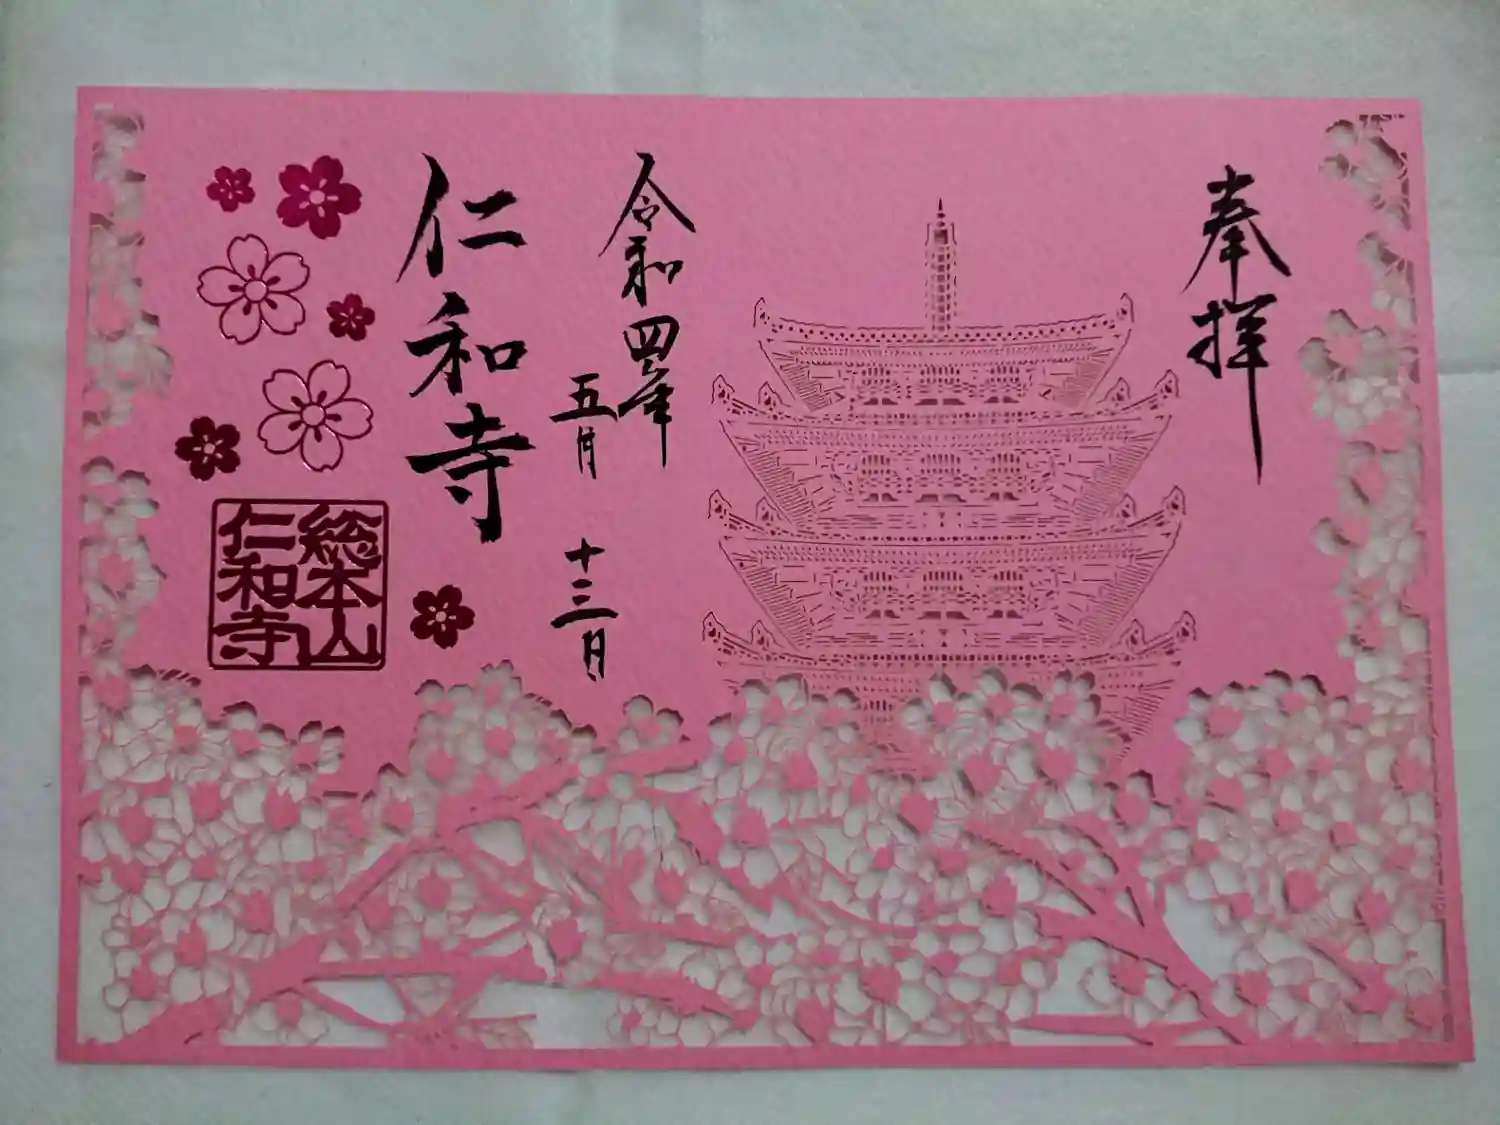 奉拝
令和四年
五月十三日
仁和寺
総本山
仁和寺